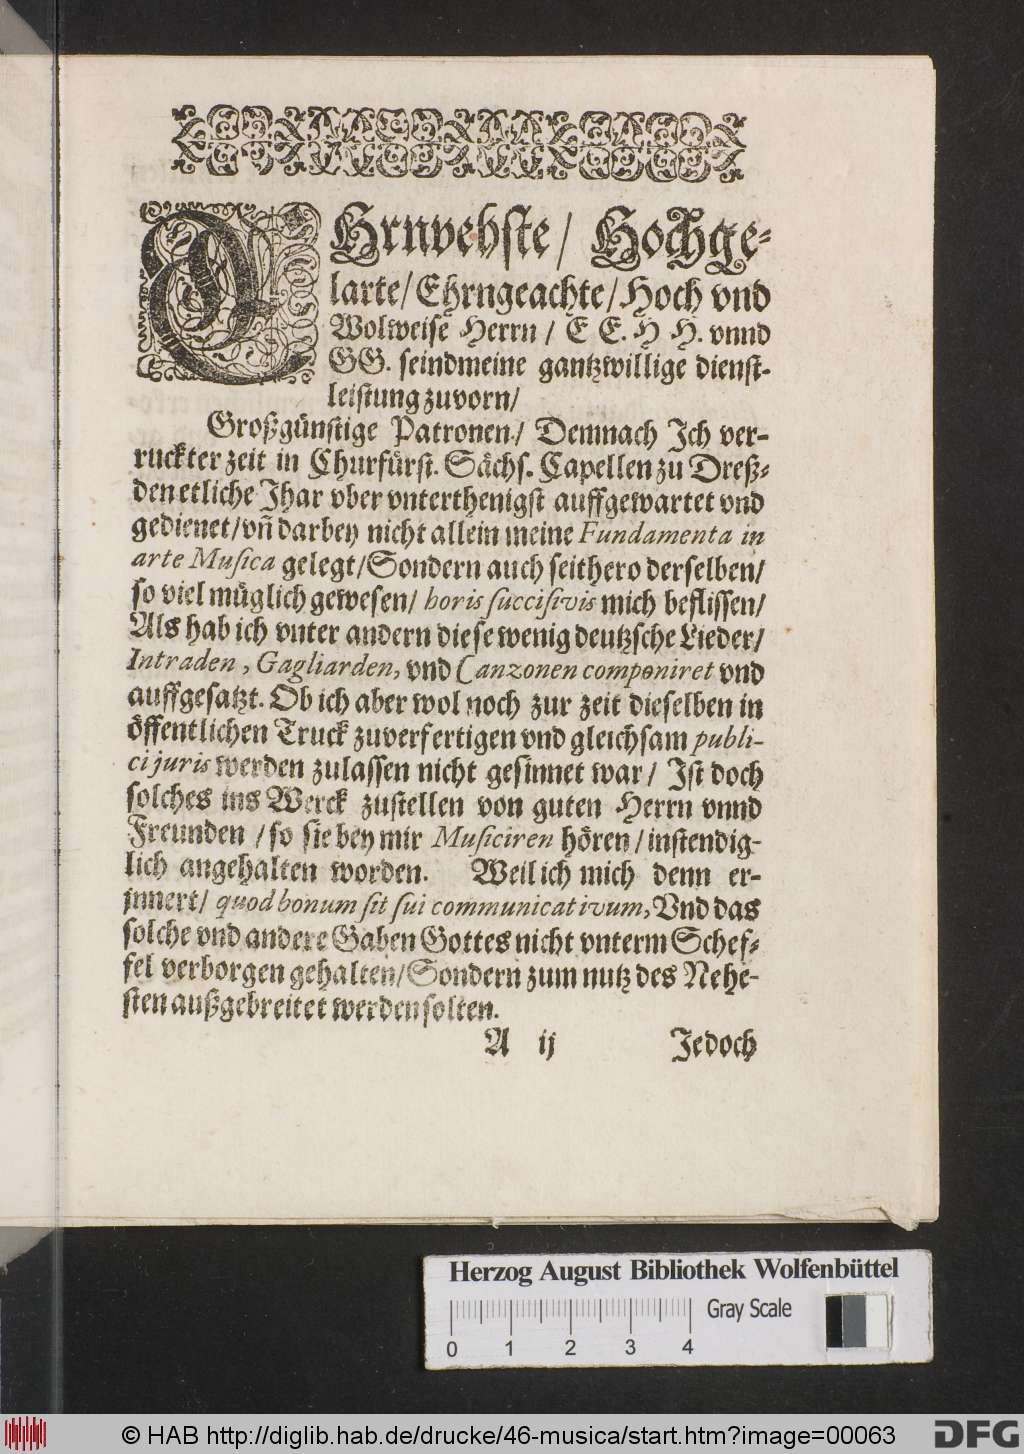 EHrnvehste/ Hochge-
larte/ Ehrngeachte/ Hoch vnd
Wolweise Herrn / E E. H H. vnnd
GG. seind meine gantzwillige dienst-
leistung zuvorn/
Großgünstige Patronen/ Demnach Ich ver-
ruckter zeit in Churfürst. Sächs. Capellen zu Dreß-
den etliche Jhar vber vnterthenigst auffgewartet vnd
gedienet/ vñ darbey nicht allein meine Fundamenta in
arte Musica gelegt/ Sondern auch seithero derselben/
so viel müglich gewesen/ horis succisivis mich beflissen/
Als hab ich vnter andern diese wenig deutzsche Lieder/
Intraden, Gagliarden, vnd Canzonen componiret vnd
auffgesatzt. Ob ich aber wol noch zur zeit dieselben in
öffentlichen Truck zuverfertigen vnd gleichsam publi-
ci juris werden zulassen nicht gesinnet war/ Ist doch
solches ins Werck zustellen von guten Herrn vnnd
Freunden / so sie bey mir Musiciren hören / instendig-
lich angehalten worden. Weil ich mich denn er-
innert/ quod bonum sit sui communicativum, Vnd das
solche vnd andere Gaben Gottes nicht vnterm Schef-
fel verborgen gehalten/ Sondern zum nutz des Nehe-
sten außgebreitet werden solten.
A ij Jedoch
Herzog August Bibliothek Wolfenbüttel
Gray Scale
0 1 2 3 4
© HAB http://diglib.hab.de/drucke/46-musica/start.htm?image=00063
DFG